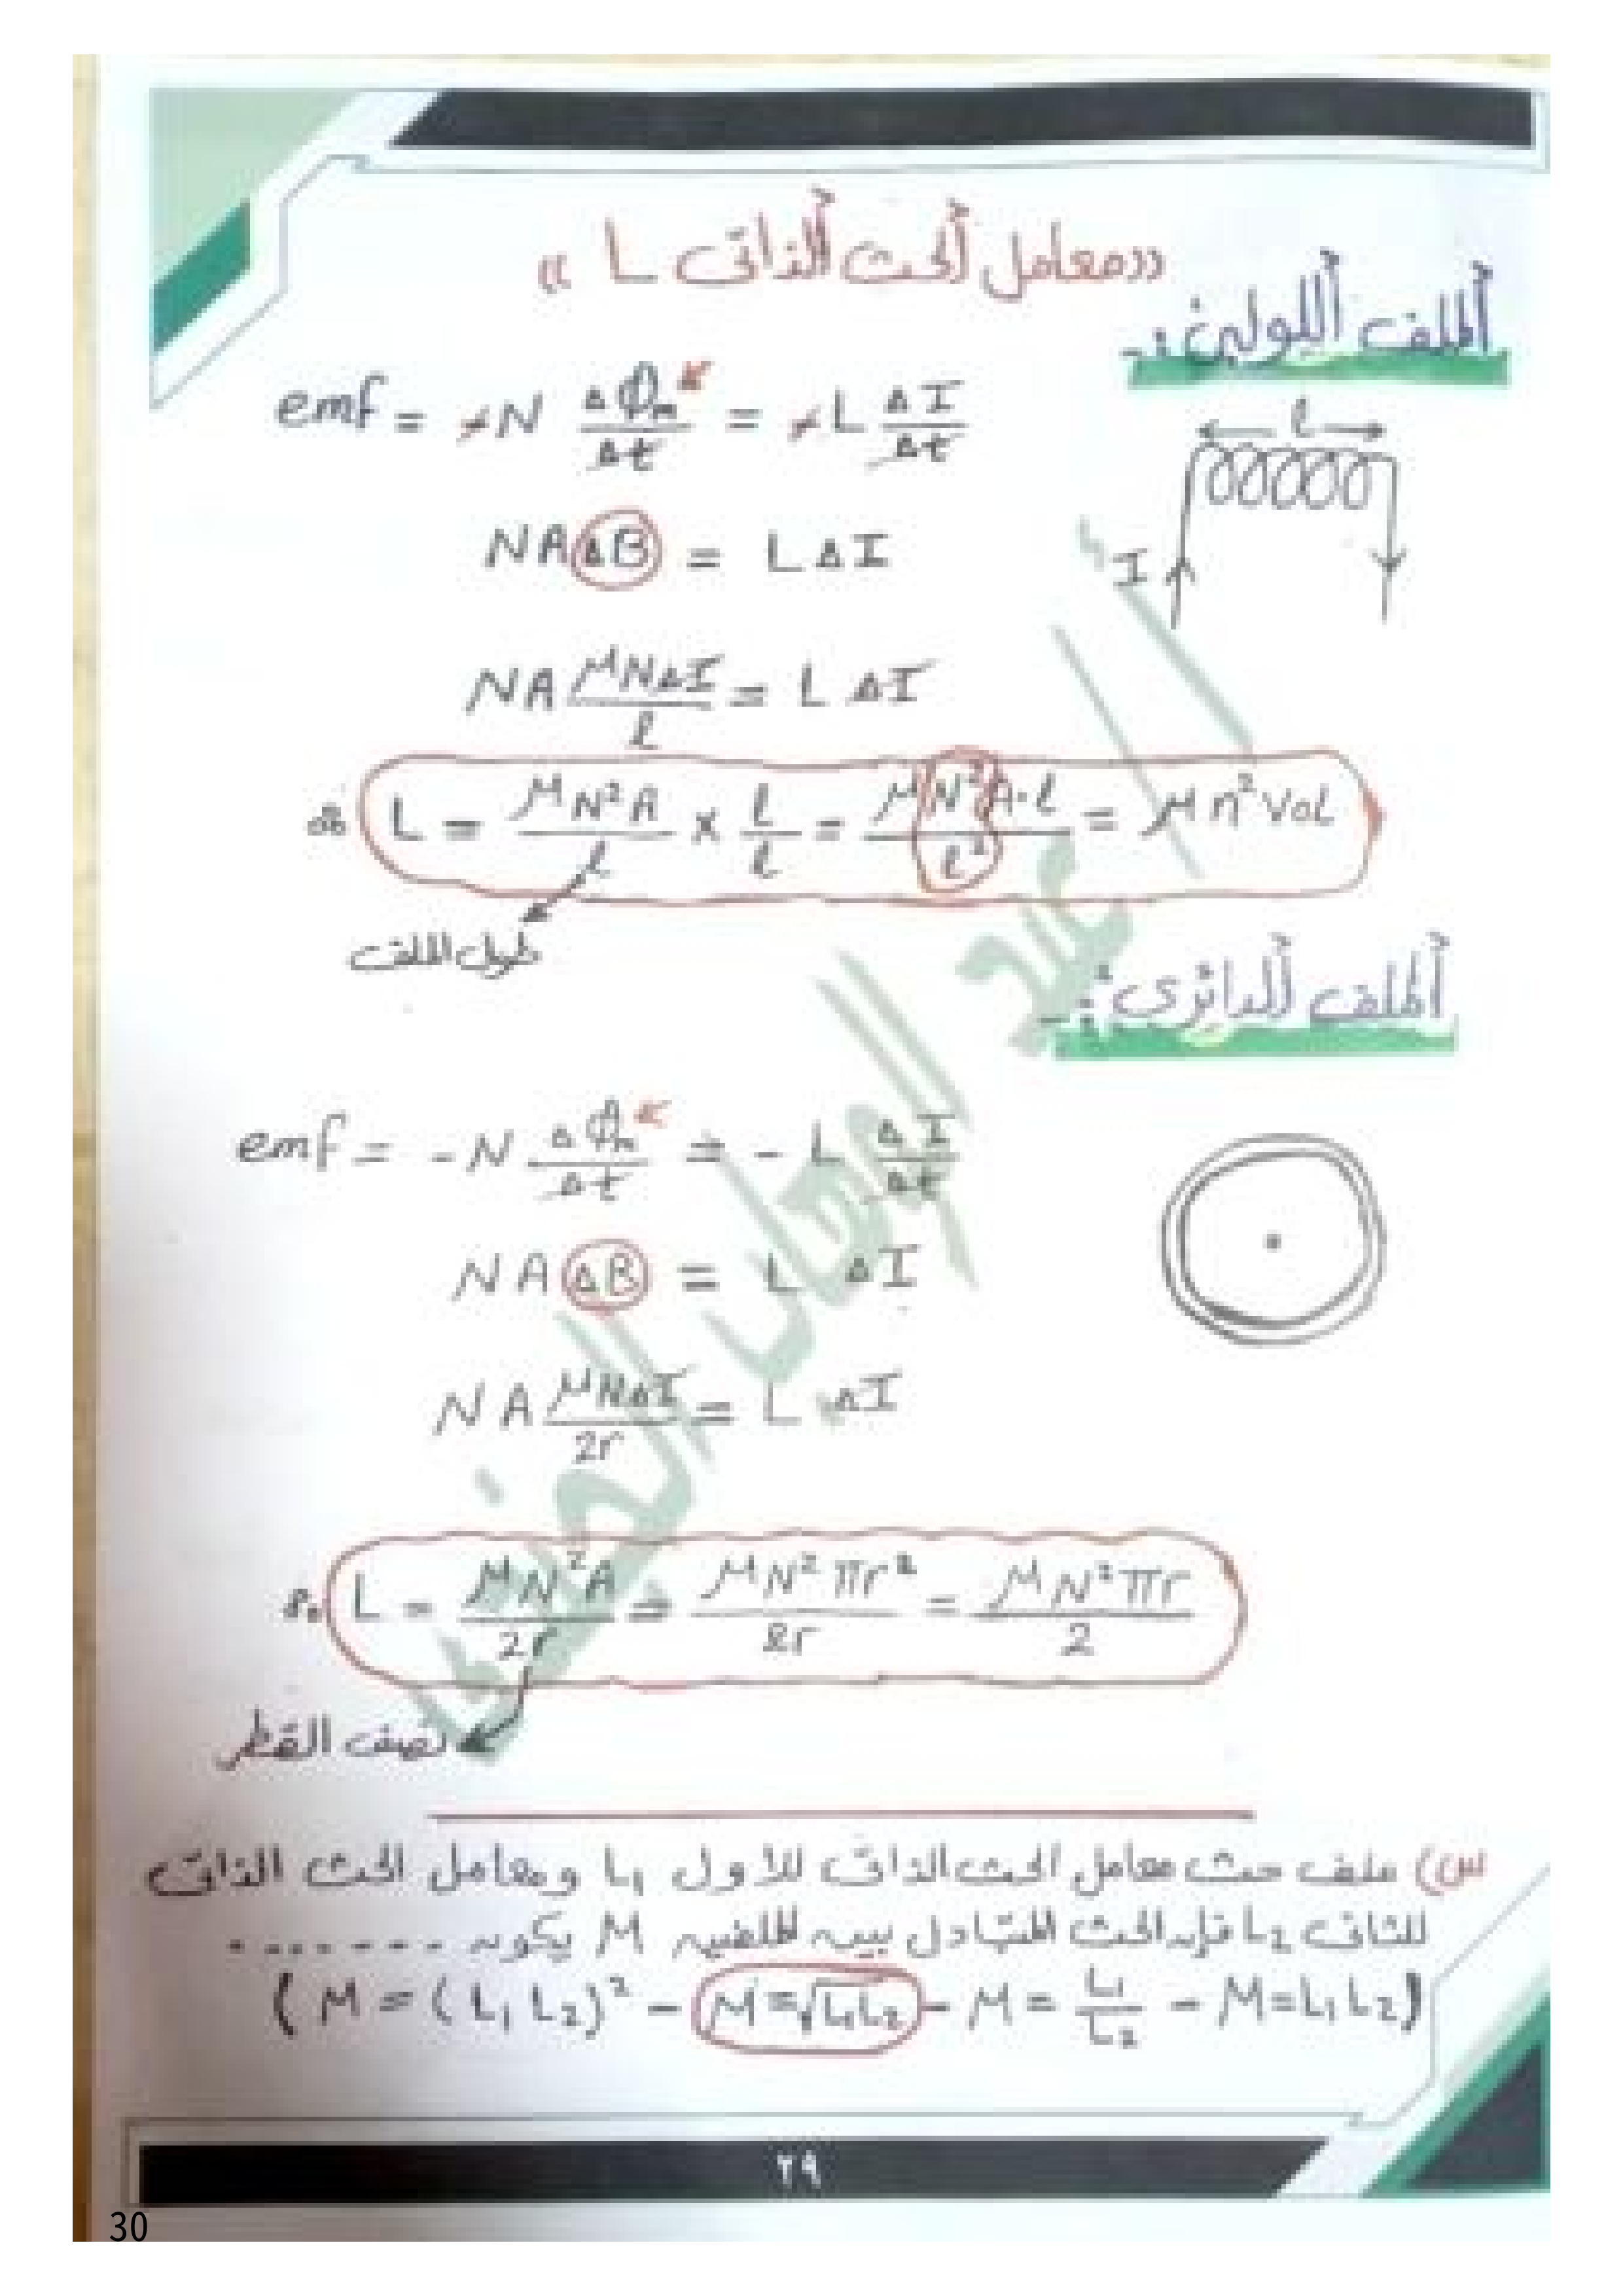 «معامل الحث الذاتى L»
الملف اللولبى :-
emf = -N ΔΦm/Δt = -L ΔI/Δt
l
I
NAΔB = LΔI
NA μNΔI/l = L ΔI
∴ L = μN²A/l × l/l = μN²A.l/l² = μn² Vol
طول الملف
الملف الدائرى :-
emf = -N ΔΦm/Δt = -L ΔI/Δt
NAΔB = L ΔI
NA μNΔI/2r = L ΔI
∴ L = μN²A/2r = μN²πr²/2r = μN²πr/2
نصف القطر
س) ملف حث معامل الحث الذاتى للاول L₁ ومعامل الحث الذاتى
للثانى L₂ فإن الحث المتبادل بين الملفين M يكون -------
(M = (L₁ L₂)² - M = √L₁L₂ - M = L₁/L₂ - M = L₁ L₂)
٢٩
30